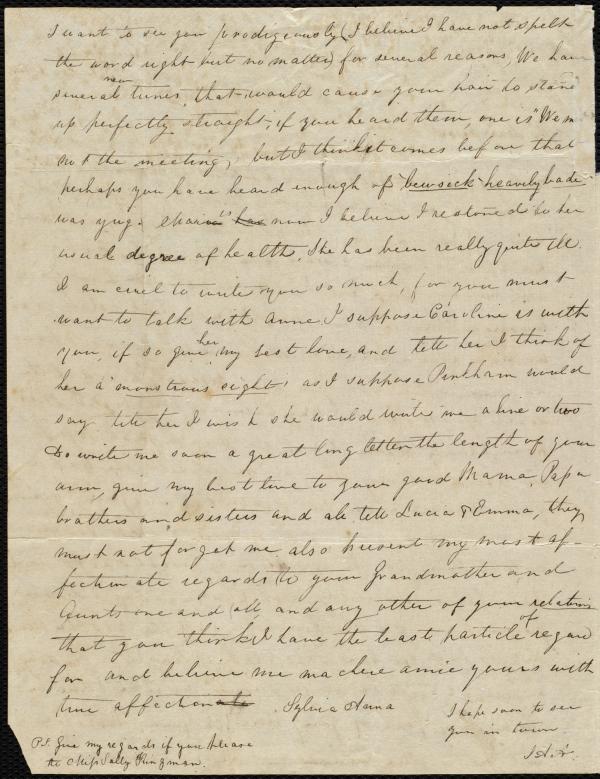 I want to see you prodigeously (I believe I have not spelt
the word right but no matter) for several reasons, We have
several new tunes, that would cause your hair to stand
up perfectly straight, if you heard them, one is "We m
not the meeting, but I think it comes before that
perhaps you have heard enough of
was now I believe restored to her
usual degree of health, She has been really quite ill.
I am cruel to write you so much, for you must
want to talk with Anne, I suppose Caroline is with
you, if so give her my best love, and tell her I think of
her a "monstrous sight" as I suppose Pinkham would
say tell her I wish she would write me a line or two
Do write me soon a great long letter the length of your
arm, give my best love to your good Mama, Papa
brothers and sisters and all tell Lucia & Emma, they
must not forget me. also present my most af-
fectionate regards to your Grandmother and
Aunts one and all, and any other of your relations
that you think I have the least particle of regard
for and believe me ma chere amie yours with
true affection Sylvia Anna
I hope soon to see
you in town.
P.S. Give my regards if you please
to Miss Sally